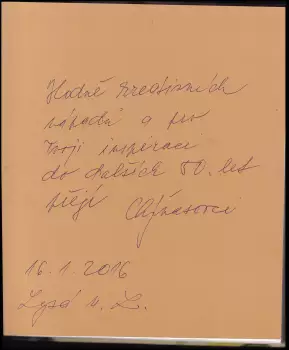 Hodně kreativních
nápadů a pro
Tvoji inspiraci
do dalších 50. let
přejí
16.1.2016
Lysá n. L.